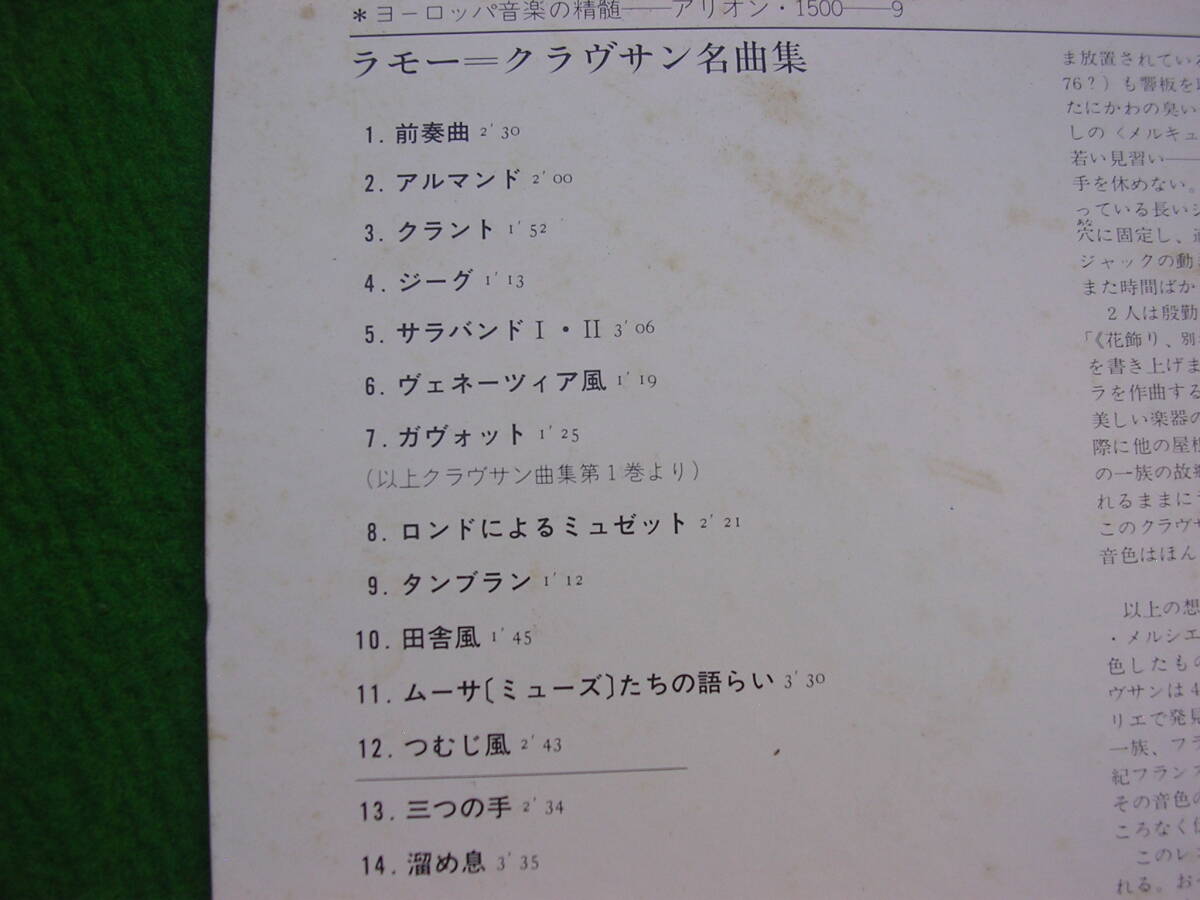 *ヨーロッパ音楽の精髄――アリオン・1500――9
ラモー＝クラヴサン名曲集
1. 前奏曲 2′30
2. アルマンド 2′00
3. クラント 1′52
4. ジーグ 1′13
5. サラバンドⅠ・Ⅱ 3′06
6. ヴェネーツィア風 1′19
7. ガヴォット 1′25
(以上クラヴサン曲集第1巻より)
8. ロンドによるミュゼット 2′21
9. タンブラン 1′12
10. 田舎風 1′45
11. ムーサ〔ミューズ〕たちの語らい 3′30
12. つむじ風 2′43
13. 三つの手 2′34
14. 溜め息 3′35
ま放置されている
76？）も響板を
たにかわの臭い
しの〈メルキュ
若い見習い――
手を休めない。
っている長い
穴に固定し、
ジャックの動
また時間ばか
2人は殷勤
「《花飾り、別
を書き上げま
ラを作曲する
美しい楽器の
際に他の屋根
の一族の故郷
れるままに
このクラヴサ
音色はほん
以上の想
・メルシエ
色したもの
ヴサンは4
リエで発見
一族、フラ
紀フランス
その音色の
ころなく
このレコ
れる。お